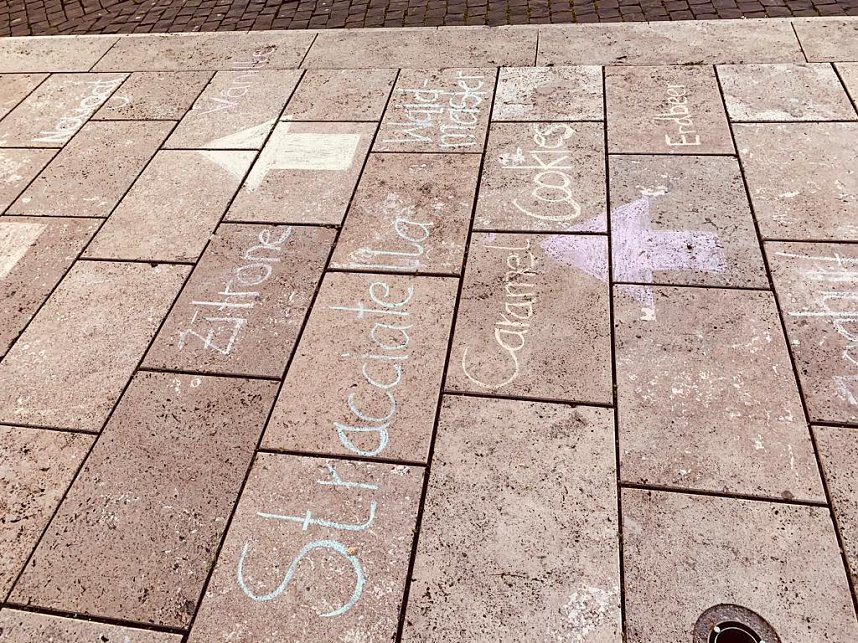 Nougat
Zitrone
Stracciatella
Wald-
meister
Caramel
Cookies
Erdbeer